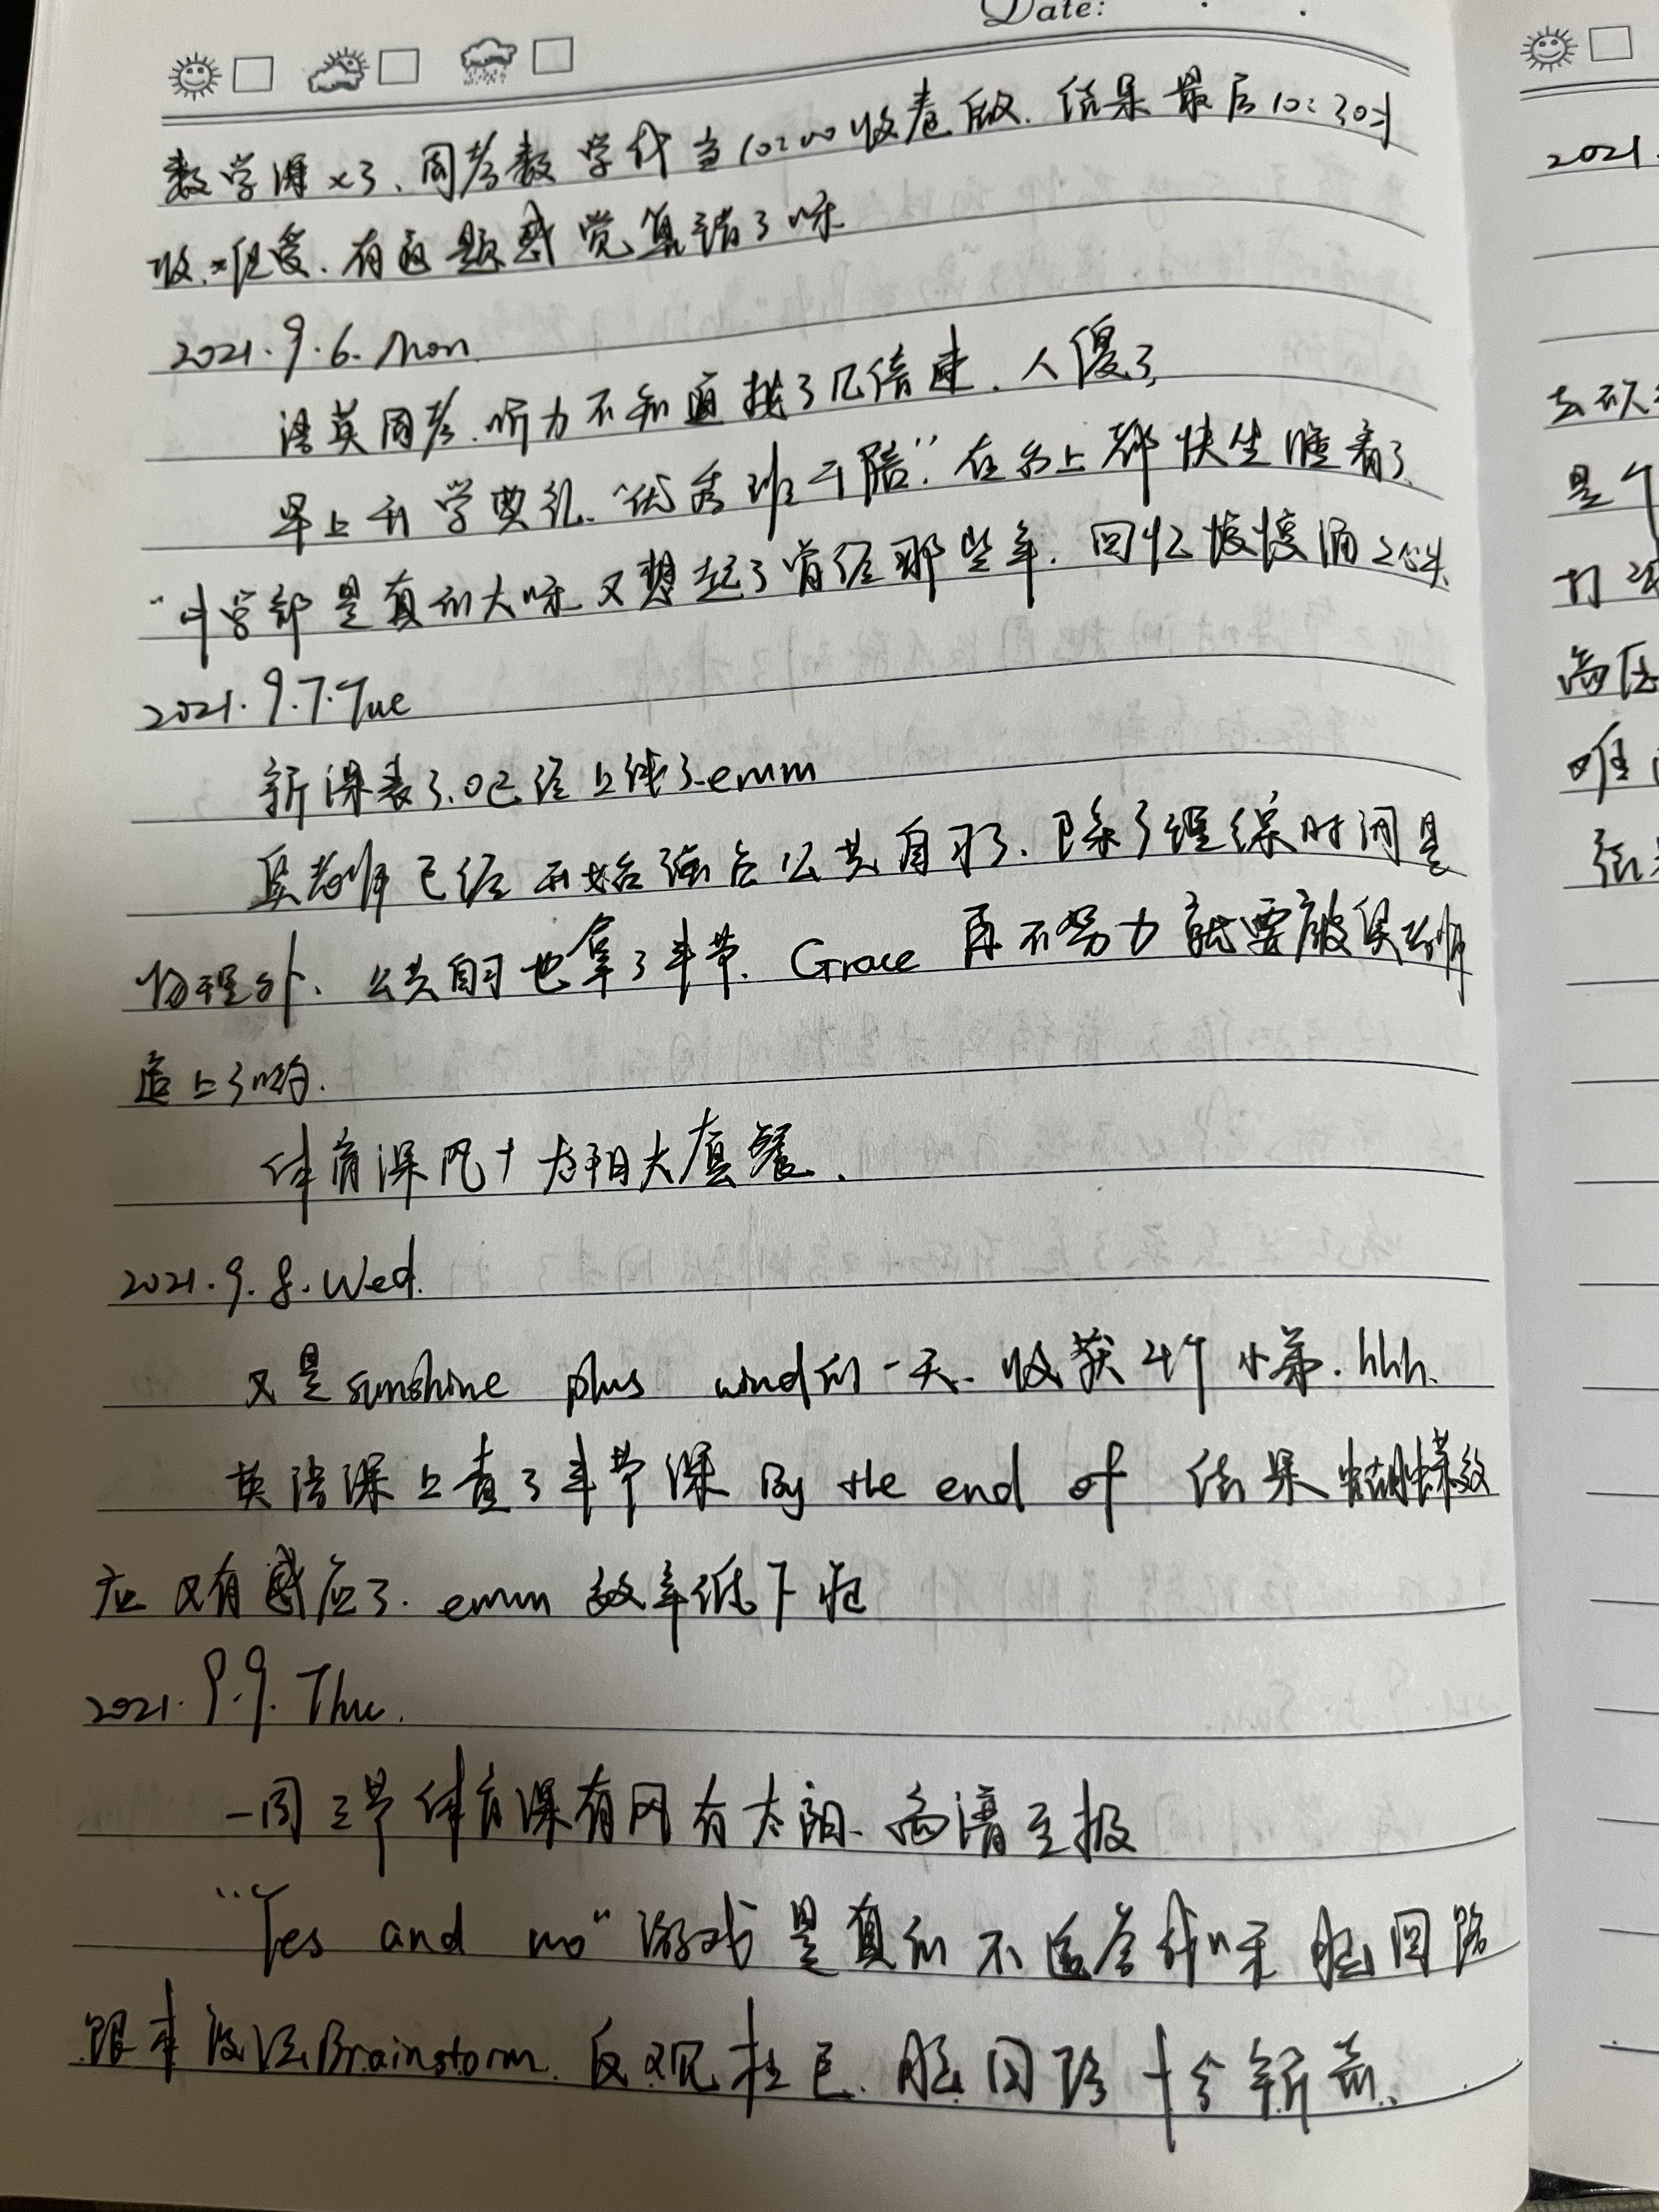 Date:
数学课×3、周考数学我当10:00收卷做.结果最后10:30才
收.难受.有道题感觉算错了呀
2021.9.6.Mon.
语英周考.听力不知道搞了几倍速.人傻了
早上开学典礼."优秀班干陪"在台上都快坐睡着了
"小学部是真的大呀又想起了曾经那些年.回忆慢慢涌上心头
2021.9.7.Tue
新课表3.0已经上线了emm
吴老师已经开始强占公共自习了.除了理综时间是
物理外、公共自习也拿了半节.Grace再不努力就要被吴老师
追上了哟.
体育课风+太阳大套餐.
2021.9.8.Wed.
又是sunshine plus wind的一天.收获4个小弟.hhh.
英语课上查了半节课By the end of 结果蝴蝶效
应又有感应了.emm效率低下啦
2021.9.9.Thu.
一周三节体育课有风有太阳.离谱至极
"Yes and no"游戏是真的不适合我呀脑回路
跟本没法Brainstorm.反观杜已.脑回路十分新奇.
2021.
是个
打
唯